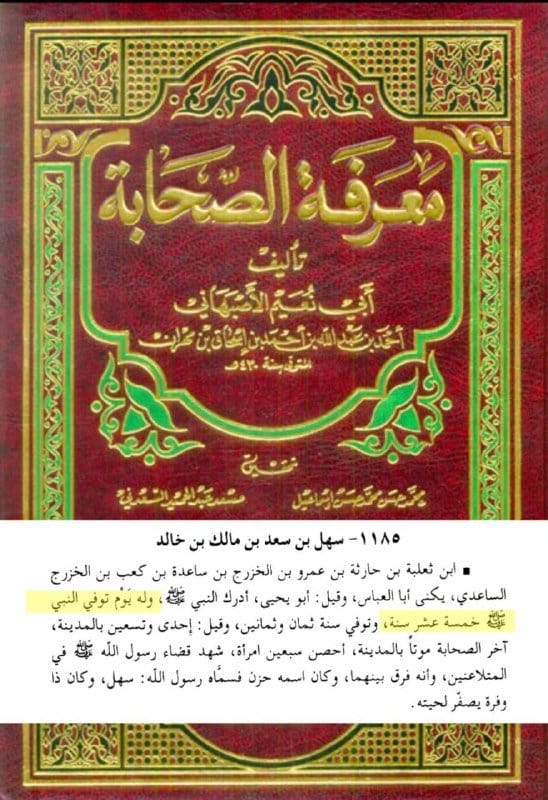 معرفة الصحابة
تأليف
أبي نعيم الأصبهاني
أحمد بن عبد الله بن أحمد بن إسحاق بن مهران
المتوفى سنة ٤٣٠هـ
تحقيق
محمد حسن محمد حسن إسماعيل مسعد عبد الحميد السعدني
١١٨٥- سهل بن سعد بن مالك بن خالد
■ ابن ثعلبة بن حارثة بن عمرو بن الخزرج بن ساعدة بن كعب بن الخزرج
الساعدي، يكنى أبا العباس، وقيل: أبو يحيى، أدرك النبي ﷺ، وله يَوْم توفي النبي
ﷺ خمسة عشر سنة، وتوفي سنة ثمان وثمانين، وقيل: إحدى وتسعين بالمدينة،
آخر الصحابة موتاً بالمدينة، أحصن سبعين امرأة، شهد قضاء رسول اللّه ﷺ في
المتلاعنين، وأنه فرق بينهما، وكان اسمه حزن فسمَّاه رسول اللّه: سهل، وكان ذا
وفرة يصفّر لحيته.